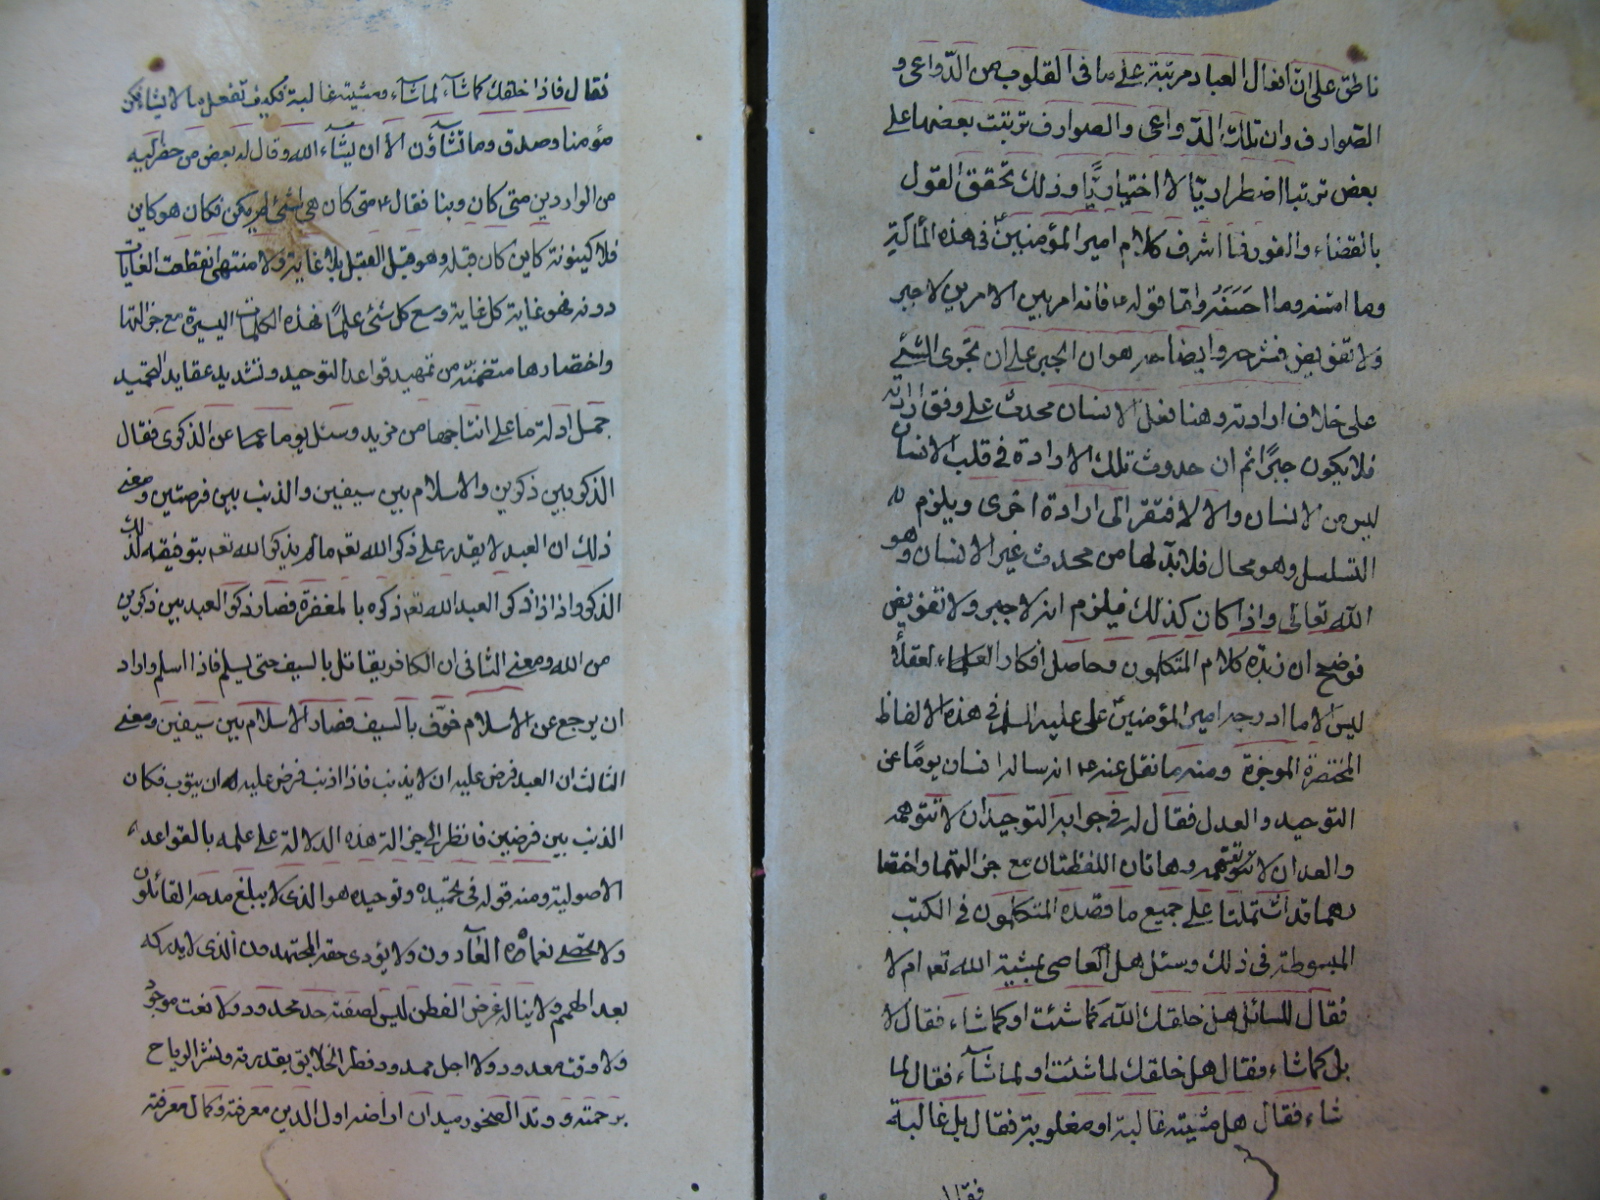 ناطق على ان افعال العباد مرتبة على ما فى القلوب من الدّواعى و
الصّوارف وان تلك الدّواعى والصوارف ترتبت بعضها على
بعض ترتبا اضطراديّا لا اختياريًّا وذلك تحقق القول
بالقضاء والقدر فما اشرف كلام امير المؤمنين فى هذه المسألة
وما امتنه وما احسنه وانما قوله ع فانه امر بين الامرين لا جبر
ولا تفويض فشرحه وايضاحه هو ان الجبر على ان تجرى الشئ
على خلاف ارادته وهنا فعل الانسان محدث على وفق ارادته
فلا يكون جبرًا ثم ان حدوث تلك الارادة فى قلب الانسان
ليس من الانسان والا لافتقر الى ارادة اخرى ويلزم
التسلسل وهو محال فلا بدّ لها من محدث غير الانسان وهو
الله تعالى واذا كان كذلك فيلزم انه لا جبر ولا تفويض
فوضح ان زبدة كلام المتكلمون وحاصل افكار العلماء العقلاء
ليس الا ما ادرجه امير المؤمنين على عليه السلم فى هذه الالفاظ
المختصرة الموجزة ومنه ما نقل عنه ع انه ساله انسان يومًا عن
التوحيد والعدل فقال له فى جوابه التوحيد ان لا تتوهمه
والعدل ان لا تتهمه وهاتان اللفظتان مع جزالتهما واختصا
رهما قد اشتملتا على جميع ما قصده المتكلمون فى الكتب
المبسوطة فى ذلك وسئل هل المعاصى بمشية الله تعه ام لا
فقال للسائل هل خلقك الله كما شئت او كما شاء فقال لا
بل كما شاء فقال هل خلقك لما شئت او لما شآء فقال لما
شاء فقال هل مشيته غالبة او مغلوبة فقال بل غالبة
فقال
فقال فاذا خلقك كما شآء لما شآء ومشيته غالبة فكيف تفعل ما لا يشاء كن
مؤمنا وصدق وما تشآؤن الا ان يشآء الله وقال له بعض من حضر اليه
من الواردين متى كان ربنا فقال ع متى كان هى لشئ لم يكن فكان هو كاين
فلا كينونة كاين كان قبله وهو قبل القبل بلا غاية ولا منتهى انقطعت الغايات
دونه فهو غاية كل غاية وسع كل شئ علمًا فهذه الكلمات اليسيرة مع جزالتها
واختصارها متضمنة من تمهيد قواعد التوحيد وتشديد عقايد التحميد
جمل ادلة ما على انتاجها من مزيد وسئل يوما عما عن الذكرى فقال
الذكر بين ذكرين والاسلام بين سيفين والذنب بين فرضين ومعنى
ذلك ان العبد لا يقدر على ذكر الله تعه ما لم يذكر الله تعه بتوفيقه لذلك
الذكر واذا ذكر العبد الله تعه ذكره بالمغفرة فصار ذكر العبد بين ذكرين
من الله ومعنى الثانى ان الكافر يقاتل بالسيف حتى يسلم فاذا اسلم واراد
ان يرجع عن الاسلام خوّف بالسيف فصار الاسلام بين سيفين ومعنى
الثالث ان العبد فرض عليه ان لا يذنب فاذا اذنب فرض عليه ان يتوب فكان
الذنب بين فرضين فانظر الى جزالة هذه الدلالة على علمه بالقواعد
الاصولية ومنه قوله فى تحميده وتوحيده هو الذى لا يبلغ مدحه القائلون
ولا تحصى نعماؤه العآدون ولا يؤدى حقه المجتهدون الذى لا يدركه
بعد الهمم ولا يناله غوص الفطن ليس لصفته حد محدود ولا نعت موجود
ولا وقت معدود ولا اجل ممدود فطر الخلايق بقدرته ونشر الرياح
برحمته ووتد الصخور ميدان ارضه اول الدين معرفته وكمال معرفته